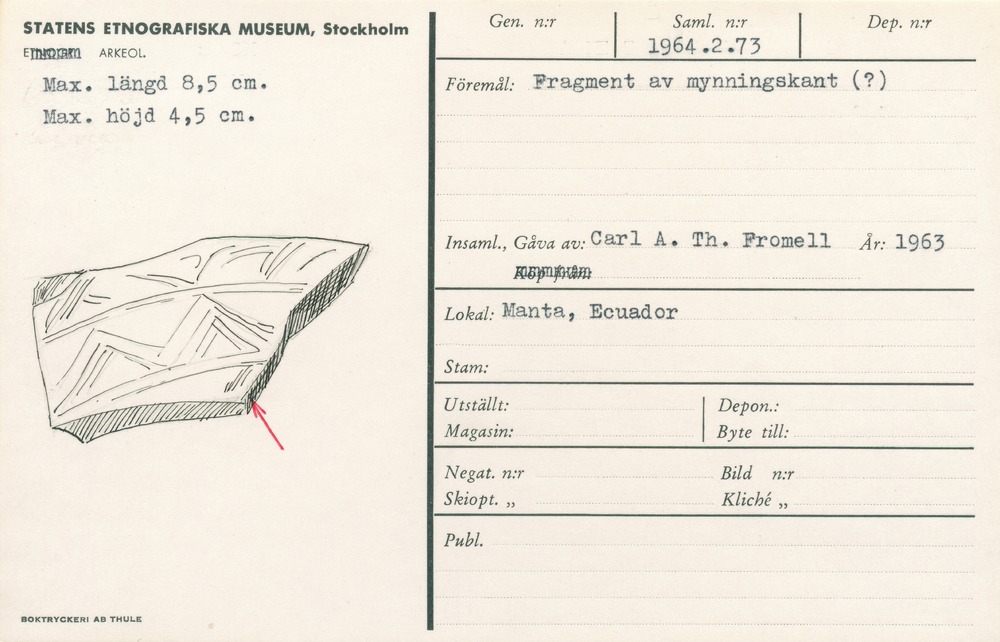 STATENS ETNOGRAFISKA MUSEUM, Stockholm
ARKEOL.
Max. längd 8,5 cm.
Max. höjd 4,5 cm.
BOKTRYCKERI AB THULE
Gen. n:r
Saml. n:r
Dep. n:r
1964.2.73
Föremål: Fragment av mynningskant (?)
Insaml., Gåva av: Carl A. Th. Fromell År: 1963
Köp från
Lokal: Manta, Ecuador
Stam:
Utställt: Depon.:
Magasin: Byte till:
Negat. n:r Bild n:r
Skiopt. „ Kliché „
Publ.